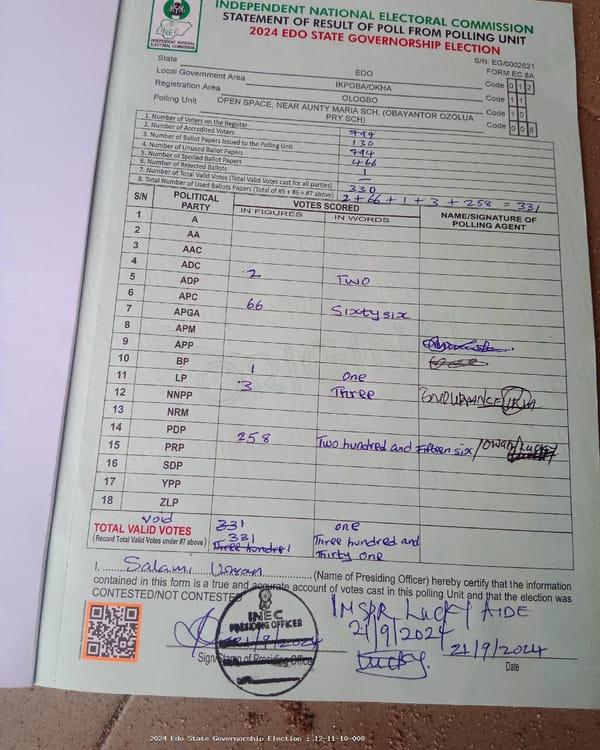 INDEPENDENT NATIONAL ELECTORAL COMMISSION
STATEMENT OF RESULT OF POLL FROM POLLING UNIT
2024 EDO STATE GOVERNORSHIP ELECTION
INEC
INDEPENDENT NATIONAL ELECTORAL COMMISSION
S/N: EG/0002621
FORM EC 8A
State EDO Code 012
Local Government Area IKPOBA/OKHA Code 11
Registration Area OLOGBO Code 10
Polling Unit OPEN SPACE, NEAR AUNTY MARIA SCH. (OBAYANTOR OZOLUA PRY SCH) Code 008
1. Number of Voters on the Register 794
2. Number of Accredited Voters 130
3. Number of Ballot Papers Issued to the Polling Unit 794
4. Number of Unused Ballot Papers 466
5. Number of Spoiled Ballot Papers 1
6. Number of Rejected Ballots –
7. Number of Total Valid Votes (Total Valid Votes cast for all parties) 330
8. Total Number of Used Ballots Papers (Total of #5 + #6 + #7 above) 2 + 66 + 1 + 3 + 258 = 331
S/N POLITICAL PARTY VOTES SCORED NAME/SIGNATURE OF POLLING AGENT
IN FIGURES IN WORDS
1 A
2 AA
3 AAC
4 ADC
5 ADP 2 Two
6 APC
7 APGA 66 Sixty six
8 APM
9 APP
10 BP
11 LP 1 one
12 NNPP 3 Three ENDURANCE
13 NRM
14 PDP
15 PRP 258 Two hundred and Fifteen six / Owan Lucky
16 SDP
17 YPP
18 ZLP
void 331 one
TOTAL VALID VOTES 331 Three hundred and
(Record Total Valid Votes under #7 above) Three hundred Thirty one
I, Salami Usman (Name of Presiding Officer) hereby certify that the information
contained in this form is a true and accurate account of votes cast in this polling Unit and that the election was
CONTESTED/NOT CONTESTED
INEC
PRESIDING OFFICER
21/9/2024
Sign/Stamp of Presiding Officer
IMSPR Lucky AIDE
21/9/2024
Lucky.
21/9/2024
Date
2024 Edo State Governorship Election : 12-11-10-008